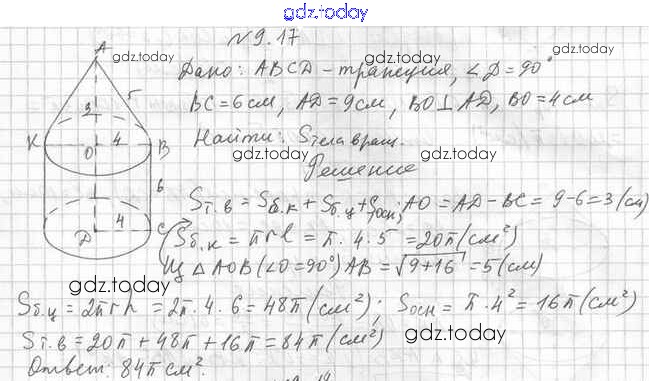 gdz.today
№9.17
A
gdz.today
gdz.today
Дано: ABCD - трапеция, ∠D = 90°
3
5
BC = 6 см, AD = 9 см, BO ⊥ AD, BO = 4 см
K
O
4
B
Найти: Sтела вращ.
gdz.today
gdz.today
Решение
6
Sт.в = Sб.к + Sб.ц + Sосн; AO = AD - BC = 9 - 6 = 3 (см)
D
4
C
Sб.к = πrl = π · 4 · 5 = 20π (см²)
Из △AOB (∠O = 90°) AB = √9 + 16 = 5 (см)
gdz.today
gdz.today
Sб.ц = 2πrh = 2π · 4 · 6 = 48π (см²); Sосн = π · 4² = 16π (см²)
Sт.в = 20π + 48π + 16π = 84π (см²)
gdz.today
Ответ: 84π см².
gdz.today